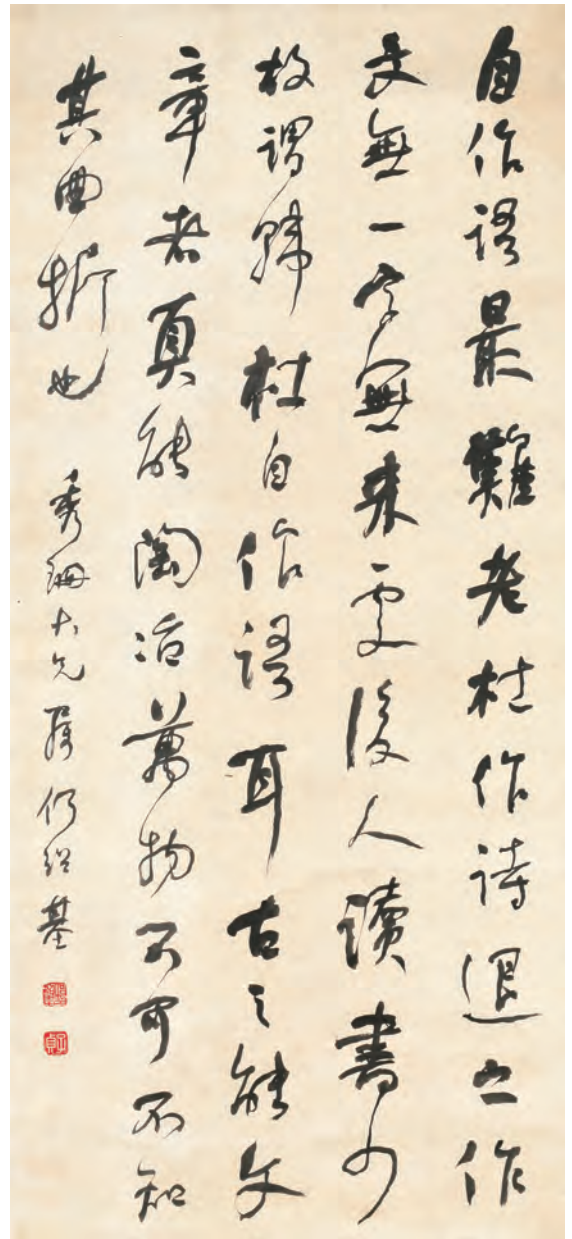 自作語最難老杜作詩退之作
文無一字無來處後人讀書少
故謂韓杜自作語耳古之能文
章者真能陶冶萬物不可不知
其曲折也 秀珊大兄屬 何紹基
子貞